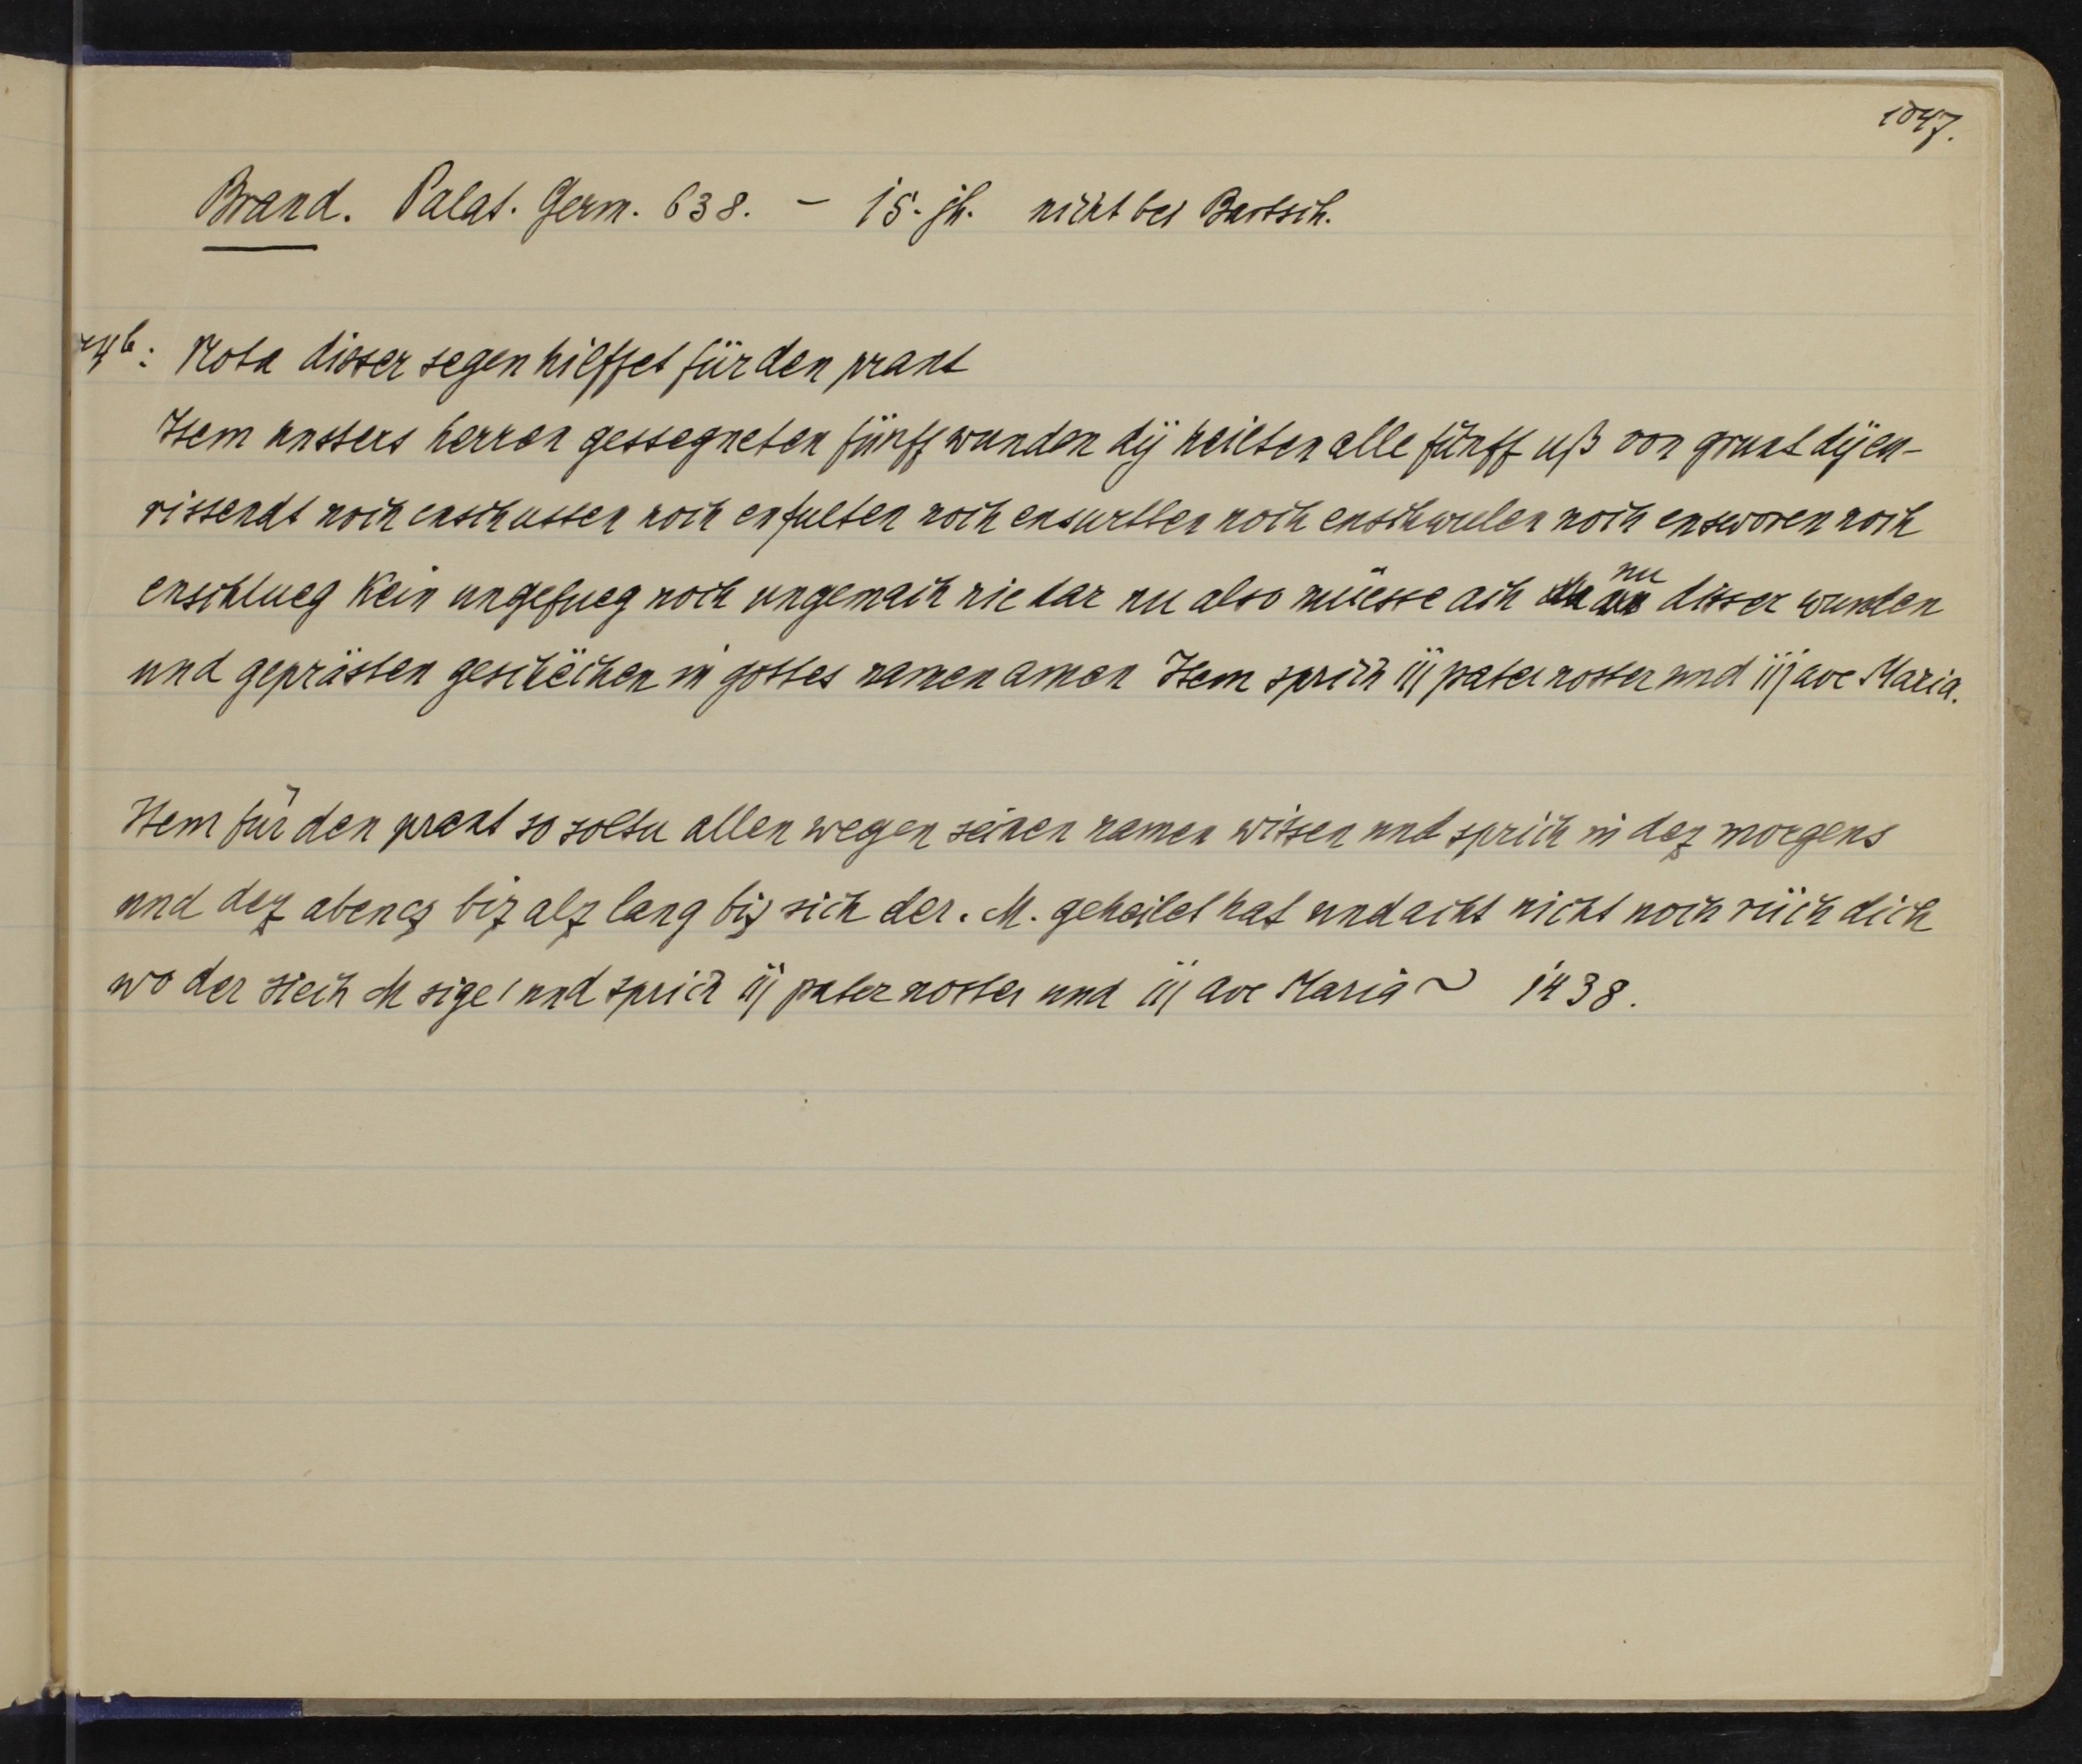 1047.
Brand. Palat. Germ. 638. – 15. jh. nicht bei Bartsch.
Nota disser segen hilffet für den prant
Item unssers herren gessegneten fünff wunden dÿ heilten alle fünff uß von grunt dÿ en-
rissendt noch enschussen noch enfulten noch ensurtten noch enschwulen noch ensworen noch
enschlueg kein ungefueg noch ungemach nie dar nu also müesse ach nu disser wunden
und geprästen geschëchen in gottes namen amen Item sprich iij pater noster und iij ave Maria.
Item für den prant so soltu allen wegen seinen namen wissen und sprich in dez morgens
und dez abencz biz alz lang biz sich der . M. geheilet hat und acht nicht noch rüch dich
wo der siech M sige / und sprich iij pater noster und iij ave Maria ~ 1438.